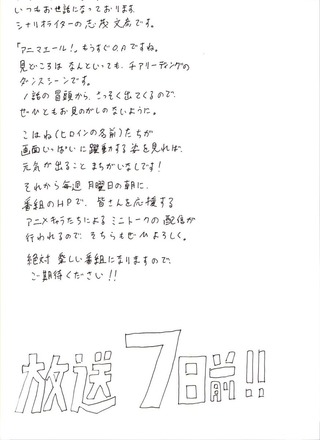 いつもお世話になっております
シナリオライターの志茂文彦です。
「アニマエール!」もうすぐO.Aですね。
見どころはなんといっても、チアリーディングの
ダンスシーンです。
1話の冒頭から、さっそく出てくるので、
ぜひともお見のがしのないように。
こはね(ヒロインの名前)たちが
画面いっぱいに躍動する姿を見れば、
元気が出ることまちがいなしです!
それから毎週月曜日の朝に、
番組のHPで、皆さんを応援する
アニメキャラたちによるミニトークの配信が
行われるので、そちらもぜひよろしく。
絶対楽しい番組になりますので、
ご期待ください!!
放送7日前!!